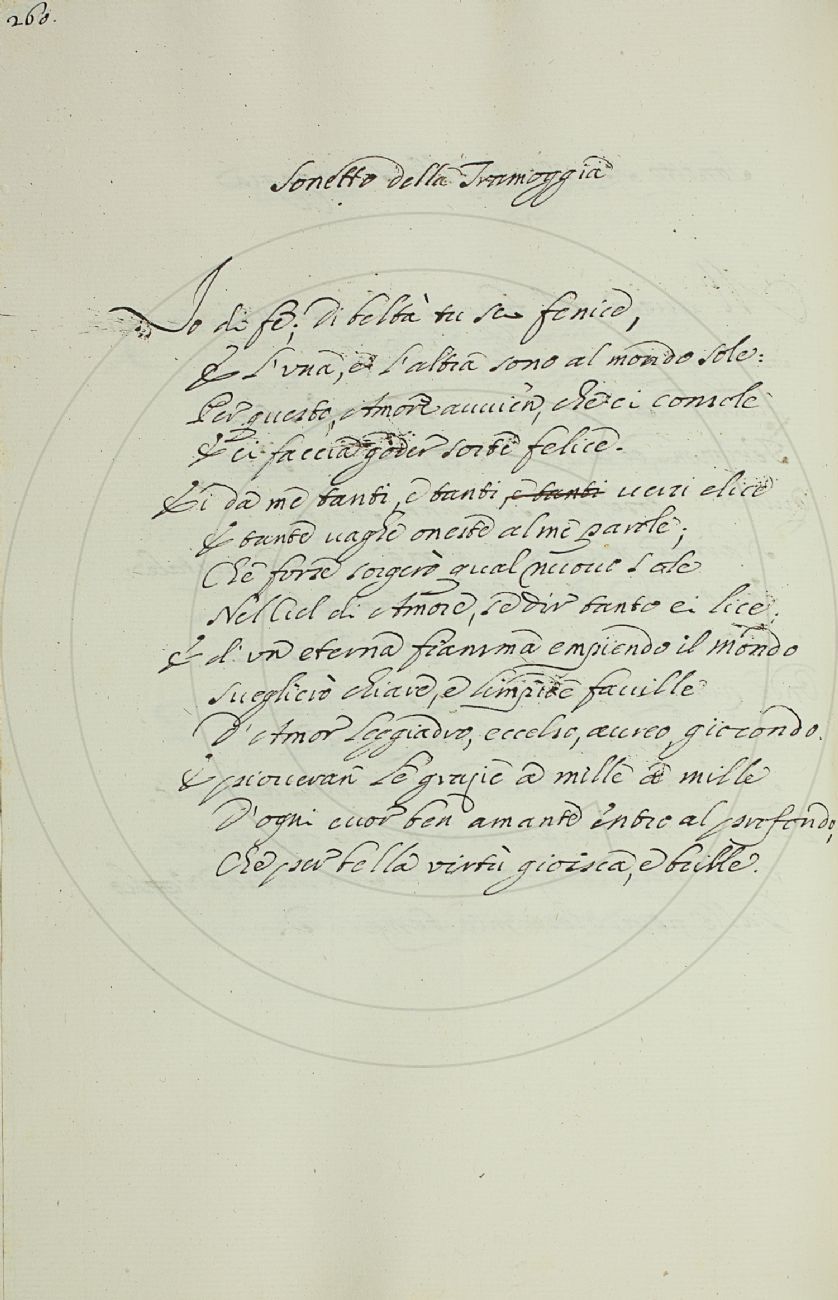 260.
Sonetto della Tramoggia
Io di fe, di beltà tu se fenice,
E l'una, e l'altra sono al mondo sole:
Per questo, Amore avvien, che ci console
E ci faccia goder sorte felice.
Ei da me tanti, e tanti, e tanti versi elice
E tante vaghe oneste alme parole;
Che forse sorgerò qual nuovo Sole
Nel Ciel di Amore, se dir tanto ei lice;
E d'un eterna fiamma empiendo il mondo
sveglierò chiare, e limpide faville
D'Amor leggiadro, eccelso, aureo, giocondo.
E pioveran le grazie a mille a mille
D'ogni cuor ben amante entro al profondo,
Che per bella virtù gioisca, e brille.